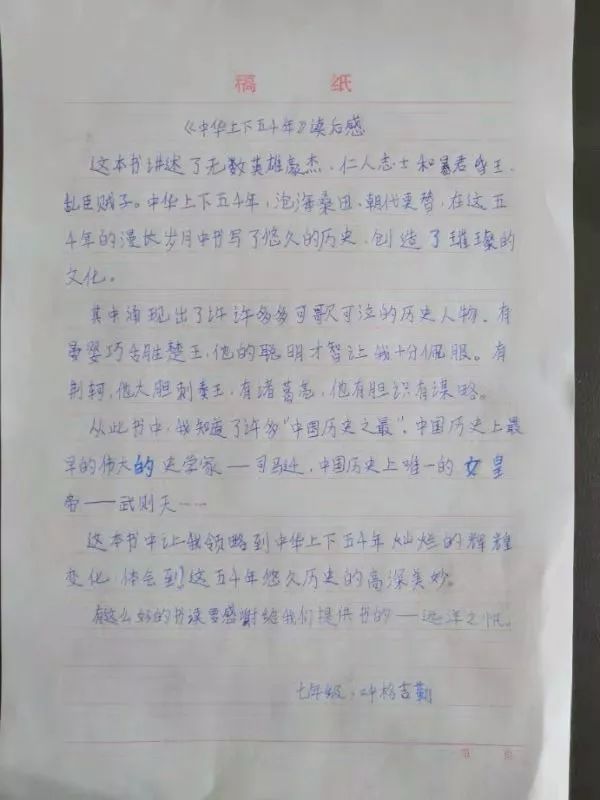 稿 纸
《中华上下五千年》读后感
这本书讲述了无数英雄豪杰、仁人志士和暴君昏王、
乱臣贼子。中华上下五千年，沧海桑田，朝代更替，在这五
千年的漫长岁月中书写了悠久的历史，创造了璀璨的
文化。
其中涌现出了许许多多可歌可泣的历史人物、有
晏婴巧舌胜楚王，他的聪明才智让我十分佩服。有
荆轲，他大胆刺秦王，有诸葛亮，他有胆识有谋略。
从此书中，我知道了许多“中国历史之最”，中国历史上最
早的伟大的史学家——司马迁，中国历史上唯一的女皇
帝——武则天……
这本书中让我领略到中华上下五千年灿烂的辉煌
变化，体会到这五千年悠久历史的高深美妙。
有这么好的书读要感谢给我们提供书的——远洋之帆。
七年级：格吉勒
第 页